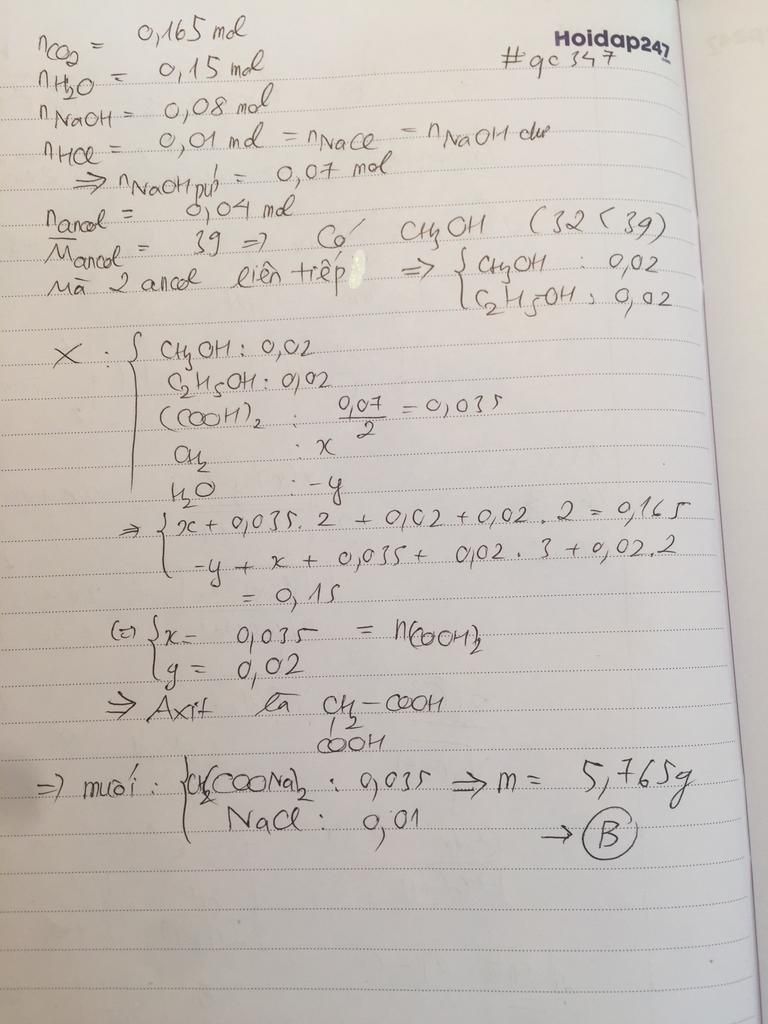 nCO2 = 0,165 mol
Hoidap247
#qc347
nH2O = 0,15 mol
nNaOH = 0,08 mol
nHCl = 0,01 mol = nNaCl = nNaOH dư
⇒ nNaOH pứ = 0,07 mol
nancol = 0,04 mol
M̅ancol = 39 ⇒ Có CH3OH (32 < 39)
Mà 2 ancol liên tiếp ⇒ { CH3OH : 0,02
C2H5OH : 0,02
X : { CH3OH : 0,02
C2H5OH : 0,02
(COOH)2 : 0,07/2 = 0,035
CH2 : x
H2O : -y
⇒ { x + 0,035.2 + 0,02 + 0,02.2 = 0,165
-y + x + 0,035 + 0,02.3 + 0,02.2
= 0,15
(=) { x = 0,035 = n(COOH)2
y = 0,02
⇒ Axit là CH2 – COOH
COOH
⇒ muối : { CH2(COONa)2 : 0,035 ⇒ m = 5,765g
NaCl : 0,01
→ B